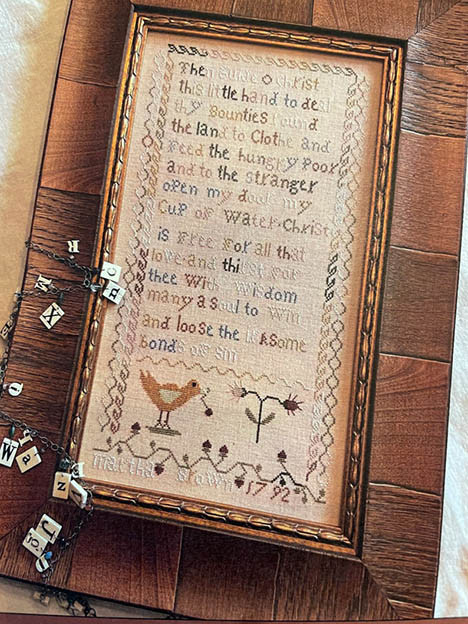 Then Guide O Christ
this little hand to deal
thy Bounties round
the land to Clothe and
Feed the hungry Poor
and to the stranger
open my door my
Cup of Water·Christ
is Free For all that
love·and thirst For
thee With Wisdom
many a soul to Win
and loose the irksome
bonds of sin
martha brown 1792
R
M
H
X
I
W
a
J